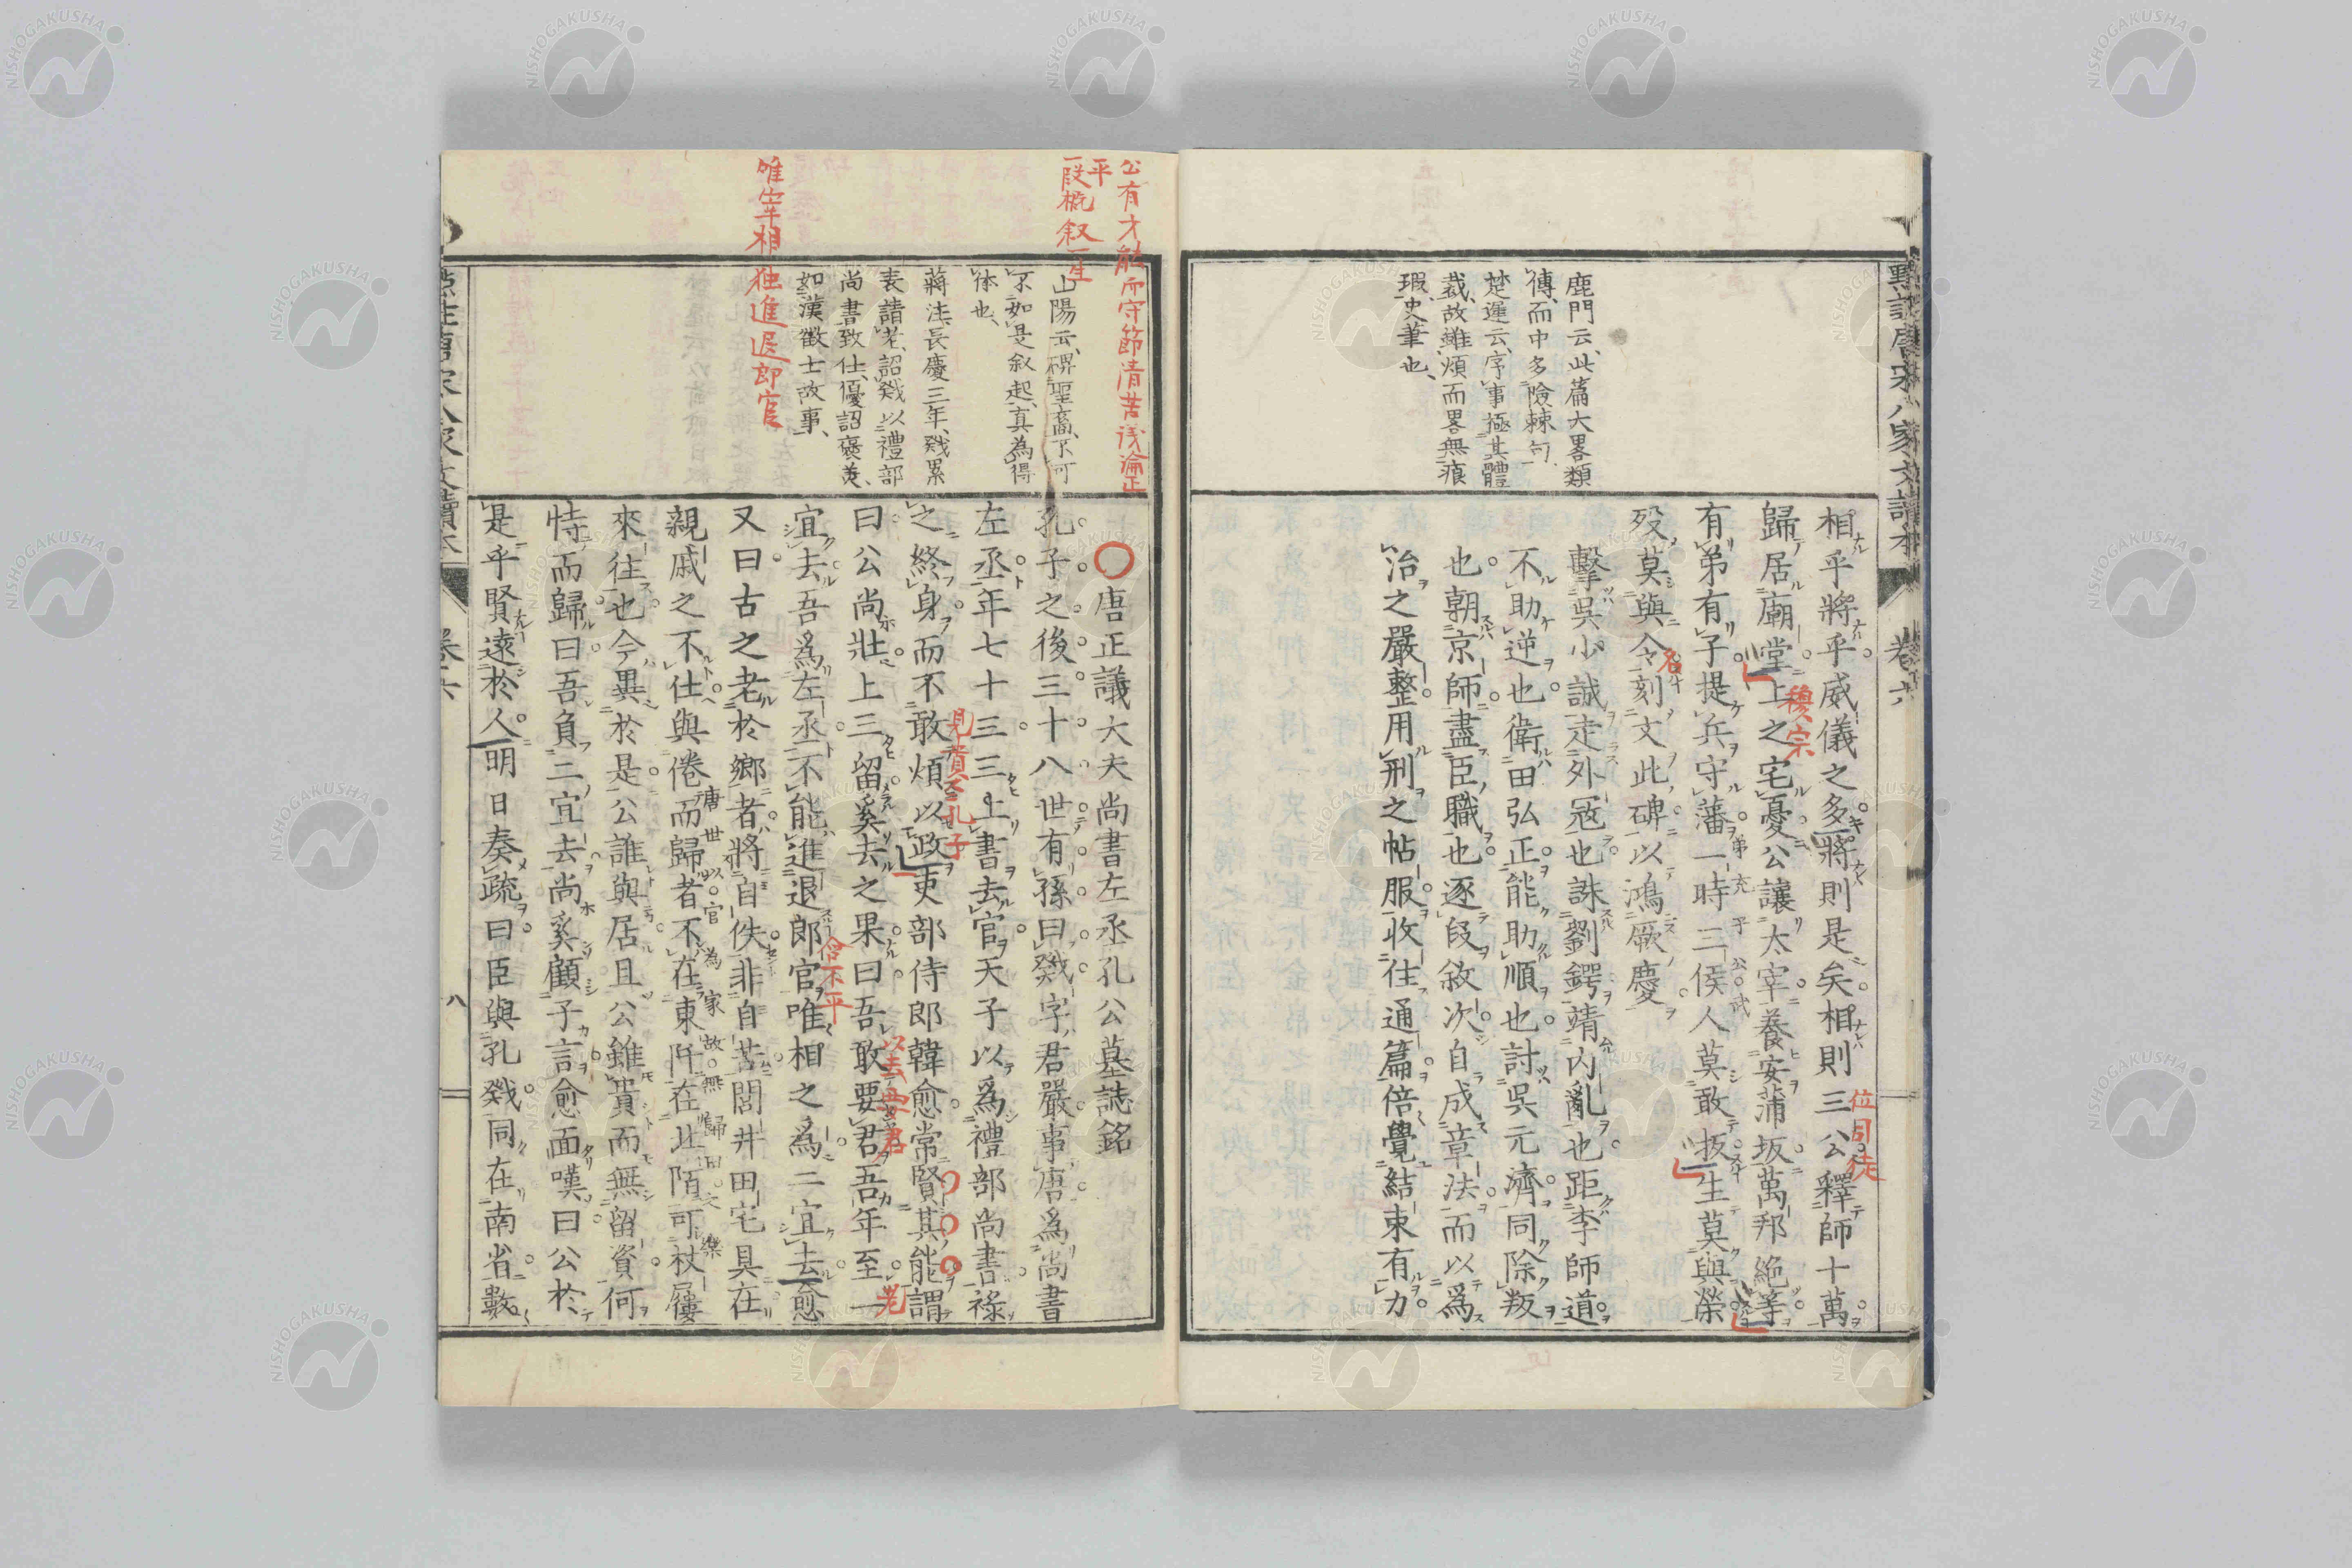 點註唐宋八家文讀本 卷六
鹿門云、此篇大畧類
傳、而中多險棘句、
楚遑云、序事極其體
裁、故雖煩而畧無痕
瑕、史筆也、
相乎將乎威儀之多將則是矣相則三公釋師十萬
歸居廟堂上之宅憂公讓太宰養安蒲坂萬邦絶等
有弟有子提兵守藩一時三侯人莫敢扳生莫與榮
歿莫與令刻文此碑以鴻厥慶
擊吳少誠走外冦也誅劉鍔靖内亂也距李師道
不助逆也衛田弘正能助順也討吳元濟同除叛
也朝京師盡臣職也逐段敘次自成章法而以爲
治之嚴整用刑之帖服收住通篇倍覺結束有力
穆宗
名十
弟充 子公武
位司徒
公有才能而守節清苦議論正
平
一段概叙一生
唯宰相独進退郎官
山陽云、碑聖裔、不可
不如是叙起、真為得
体也、
蔣注、長慶三年、戣累
表請老、詔戣以禮部
尚書致仕、優詔褒美、
如漢徵士故事、
○唐正議大夫尚書左丞孔公墓誌銘
孔子之後三十八世有孫曰戣字君嚴事唐爲尚書
左丞年七十三三上書去官天子以爲禮部尚書祿
之終身而不敢煩以政吏部侍郎韓愈常賢其能謂
曰公尚壯上三留奚去之果曰吾敢要君吾年至一
宜去吾爲左丞不能進退郎官唯相之爲二宜去愈
又曰古之老於鄉者將自佚非自苦閭井田宅具在
親戚之不仕與倦而歸者不在東阡在北陌可杖屨
來往也今異於是公誰與居且公雖貴而無留資何
恃而歸曰吾負二宜去尚奚顧子言愈面嘆曰公於
是乎賢遠於人明日奏疏曰臣與孔戣同在南省數
以去要君
老
含不平
唐世以官為家故無歸田之樂
八